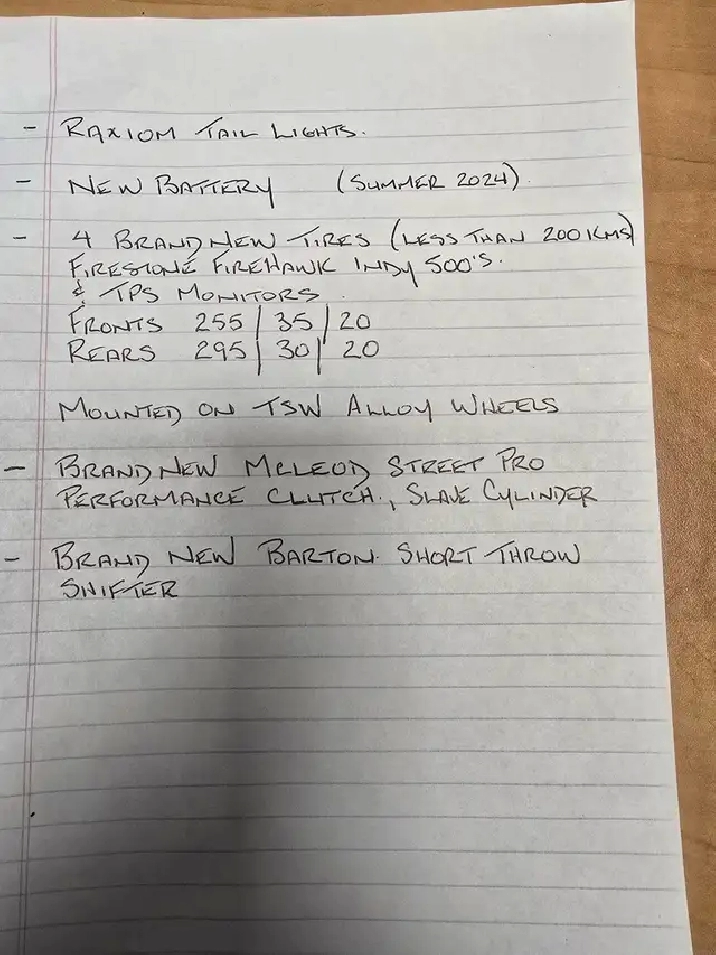 - RAXIOM TAIL LIGHTS.
- NEW BATTERY (SUMMER 2024).
- 4 BRAND NEW TIRES (LESS THAN 200 KMS)
FIRESTONE FIREHAWK INDY 500'S.
& TPS MONITORS.
FRONTS 255 | 35 | 20
REARS 295 | 30 | 20
MOUNTED ON TSW ALLOY WHEELS
- BRAND NEW MCLEOD STREET PRO
PERFORMANCE CLUTCH., SLAVE CYLINDER
- BRAND NEW BARTON SHORT THROW
SHIFTER